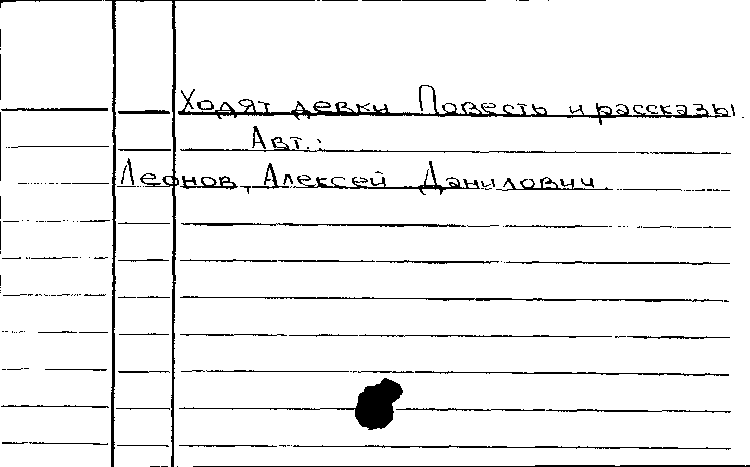 Ходят девки Повесть и рассказы.
Авт.:
Леонов, Алексей Данилович.